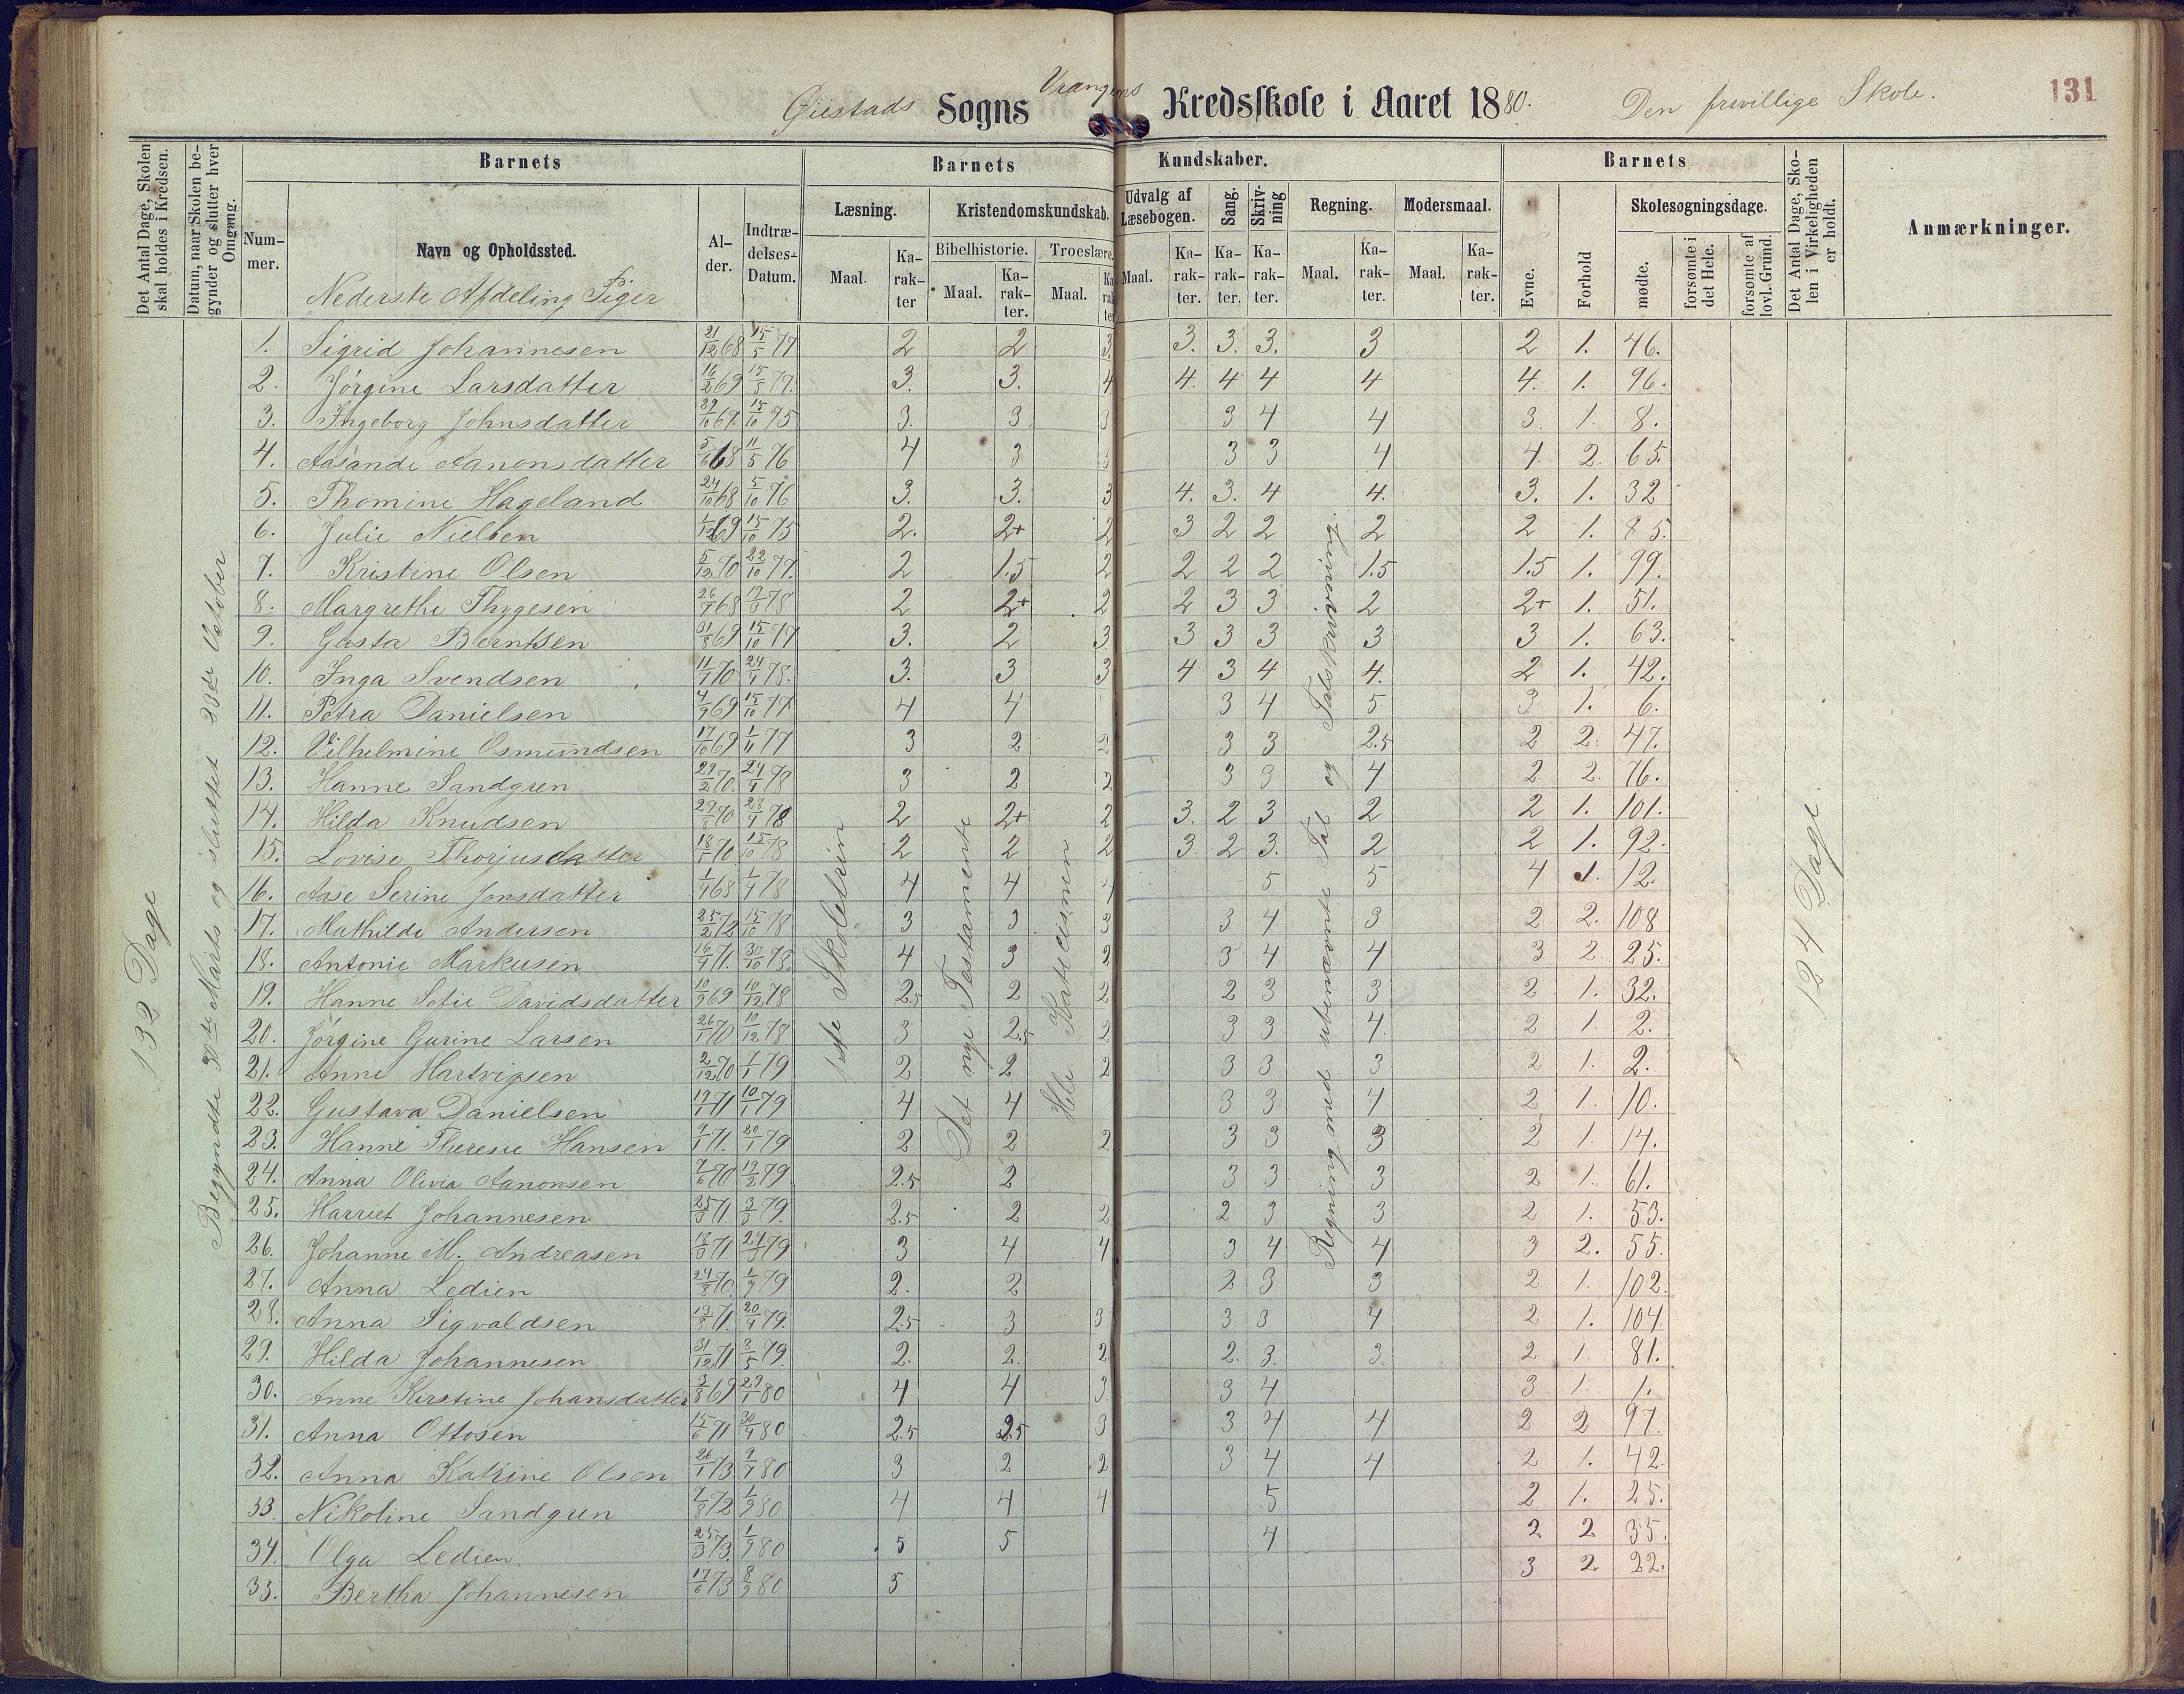 Øiestads Sogns Vrangens Kredsskole i Aaret 1880. Den frivillige Skole. 131
Det Antal Dage, Skolen skal holdes i Kredsen.
Datum, naar Skolen begynder og slutter hver Omgang.
Barnets
Barnets Kundskaber.
Barnets
Det Antal Dage, Skolen i Virkeligheden er holdt.
Anmærkninger.
Nummer. Navn og Opholdssted. Alder. Indtrædelses-Datum.
Læsning. Kristendomskundskab. Udvalg af Læsebogen. Sang. Skrivning Regning. Modersmaal. Evne. Forhold Skolesøgningsdage.
Bibelhistorie. Troeslære.
Maal. Karakter Maal. Karakter. Maal. Karakter Maal. Karakter. Karakter. Karakter. Maal. Karakter. Maal. Karakter. mødte. forsømte i det Hele. forsømte af lovl. Grund.
Nederste Afdeling Piger
132 Dage
Begyndte 30te Marts og sluttet 23de October
1ste Skoletrin
Det nye Testamente
Hele Katecismen
Regning med ubenævnte Tal og Talskrivning.
124 Dage
1. Sigrid Johannesen 21/12 68 15/5 77 2 2 3. 3. 3. 3. 3 2 1. 46.
2. Jørgine Larsdatter 16/2 69 15/5 77. 3. 3. 4 4. 4 4 4 4. 1. 96.
3. Ingeborg Johnsdatter 29/10 67. 15/10 75 3. 3 3 3 4 4 3. 1. 8.
4. Aasande Aanonsdatter 5/6 68 11/5 76 4 3 3 3 4 4 2. 65.
5. Thomine Hageland 24/10 68 5/10 76 3. 3. 3 4. 3. 4 4. 3. 1. 32
6. Julie Nielsen 1/12 69 15/10 75 2. 2+ 2 3 2 2 2 2 1. 85.
7. Kristine Olsen 5/12 70 22/10 77. 2 1.5 2 2 2 2 1.5 1.5 1. 99.
8. Margrethe Thygesen 2 2+ 2 2 3 3 2 2+ 1. 51.
9. Gusta Berntsen 31/8 69 15/10 77 3. 2 3. 3 3 3 3 3 1. 63.
10. Inga Svendsen 3. 3 3 4 3 4 4. 2 1. 42.
11. Petra Danielsen 4/9 69 15/10 77 4 4 3 4 5 3 1. 6.
12. Vilhelmine Osmundsen 17/10 69 1/11 77 3 2 2 3 3 2.5 2 2. 47.
13. Hanne Sandgren 3 2 2 3 3 4 2 2. 76.
14. Hilda Knudsen 2 2+ 2 3. 2 3 2 2 1. 101.
15. Lovise Thorjusdatter 18/5 70 15/10 78 2 2 2 3. 2 3. 2 2 1. 92.
16. Aase Serine Jonsdatter 1/4 68 1/4 78 4 4 4 5 5 4 1. 12.
17. Mathilde Andersen 25/2 72 15/10 78 3 3 3 3 4 3 2 2. 108
18. Antonie Markusen 16/4 71. 30/10 78. 4 3 2 3 4 4 3 2. 25.
19. Hanne Sofie Davidsdatter 10/9 69 10/12 78 2.5 2 2 2 3 3 2 1. 32.
20. Jørgine Gurine Larsen 26/1 70 10/12 78 3 2.5 2 3 3 4. 2 1. 2.
21. Anne Hartvigsen 2/12 70 7/1 79 2 2 2 3 3 3 2 1. 2.
22. Gustava Danielsen 19/1 71 10/1 79 4 4 3 3 4 2 1. 10.
23. Hanne Theresie Hansen 9/1 71. 20/1 79 2 2 2 3 3 3 2 1. 14.
24. Anna Olivia Aanonsen 7/6 70 19/2 79 2.5 2 3 3 3 2 1. 61.
25. Harriet Johannesen 25/3 71. 3/3 79. 2.5 2 2 2 3 3 2 1. 53.
26. Johanne M. Andreasen 13/3 71. 24/3 79 3 4 4 3 4 4 3 2. 55.
27. Anna Ledien 24/8 70. 1/9 79 2. 2 2 3 3 2 1. 102.
28. Anna Sigvaldsen 13/8 71. 20/4 79. 2.5 3 3 3 3 4 2 1. 104
29. Hilda Johannesen 31/12 71 8/5 79. 2. 2. 2 2. 3. 3. 2 1. 81.
30. Anne Kirstine Johansdatter 3/8 69 29/1 80 4 4 3 3 4 3 1. 1.
31. Anna Ottosen 15/6 71 30/4 80 2.5 2.5 3 3 4 4 2 2 97.
32. Anna Katrine Olsen 26/1 73 9/4 80 3 2 2 3 4 4 2 1. 42
33. Nikoline Sandgren 7/8 72 1/9 80 4 4 4 5 2 1. 25.
34. Olga Ledien 25/3 73. 1/9 80 5 5 4 2 2 35.
35. Bertha Johannesen 17/6 73 8/9 80 5 3 2 22.